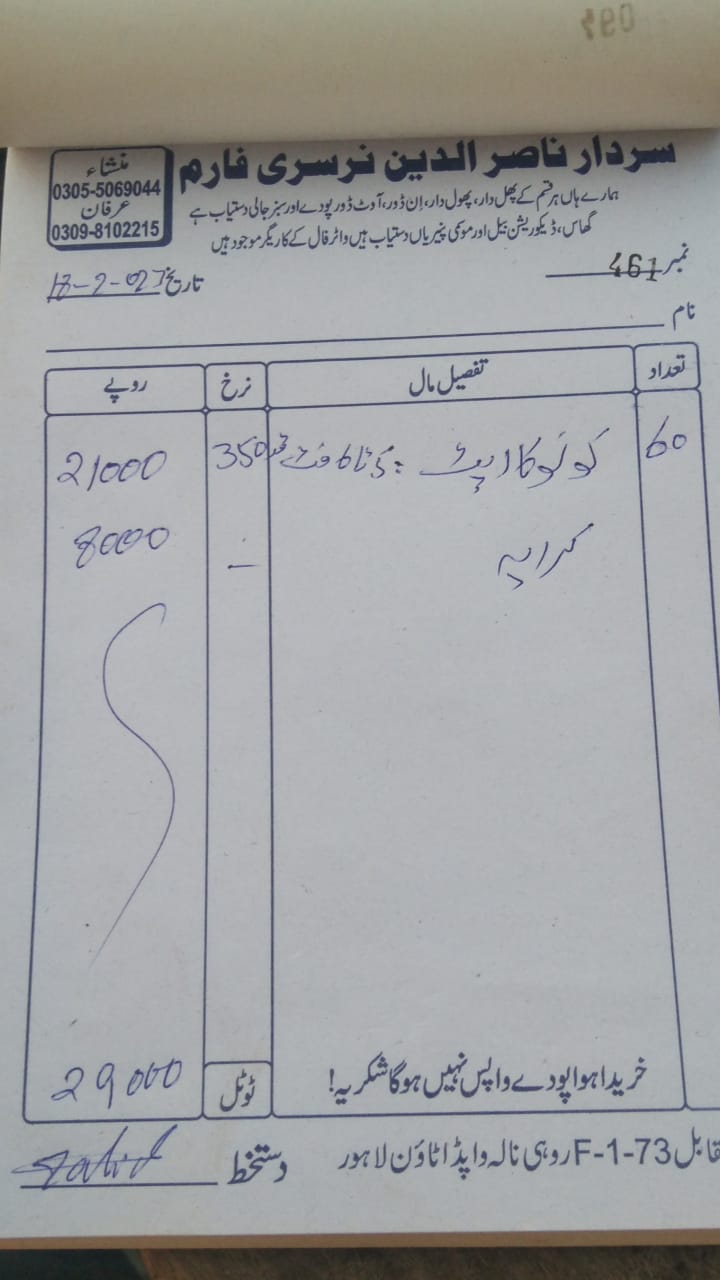 سردار ناصر الدین نرسری فارم
منشاء
0305-5069044
عرفان
0309-8102215
ہمارے ہاں ہر قسم کے پھل دار، پھول دار، اِن ڈور، آوٹ ڈور پودے اور سبز جالی دستیاب ہے
گھاس، ڈیکوریشن بیل اور موسمی پنیریاں دستیاب ہیں واٹر فال کے کاریگر موجود ہیں
نمبر 461
تاریخ
نام
تعداد تفصیل مال نرخ روپے
60 کونوکارپٹ 350 21000
کرایہ - 8000
خریدا ہوا پودے واپس نہیں ہوگا شکریہ! ٹوٹل 29000
دستخط
قابل F-1-73 روہی نالہ واپڈا ٹاؤن لاہور